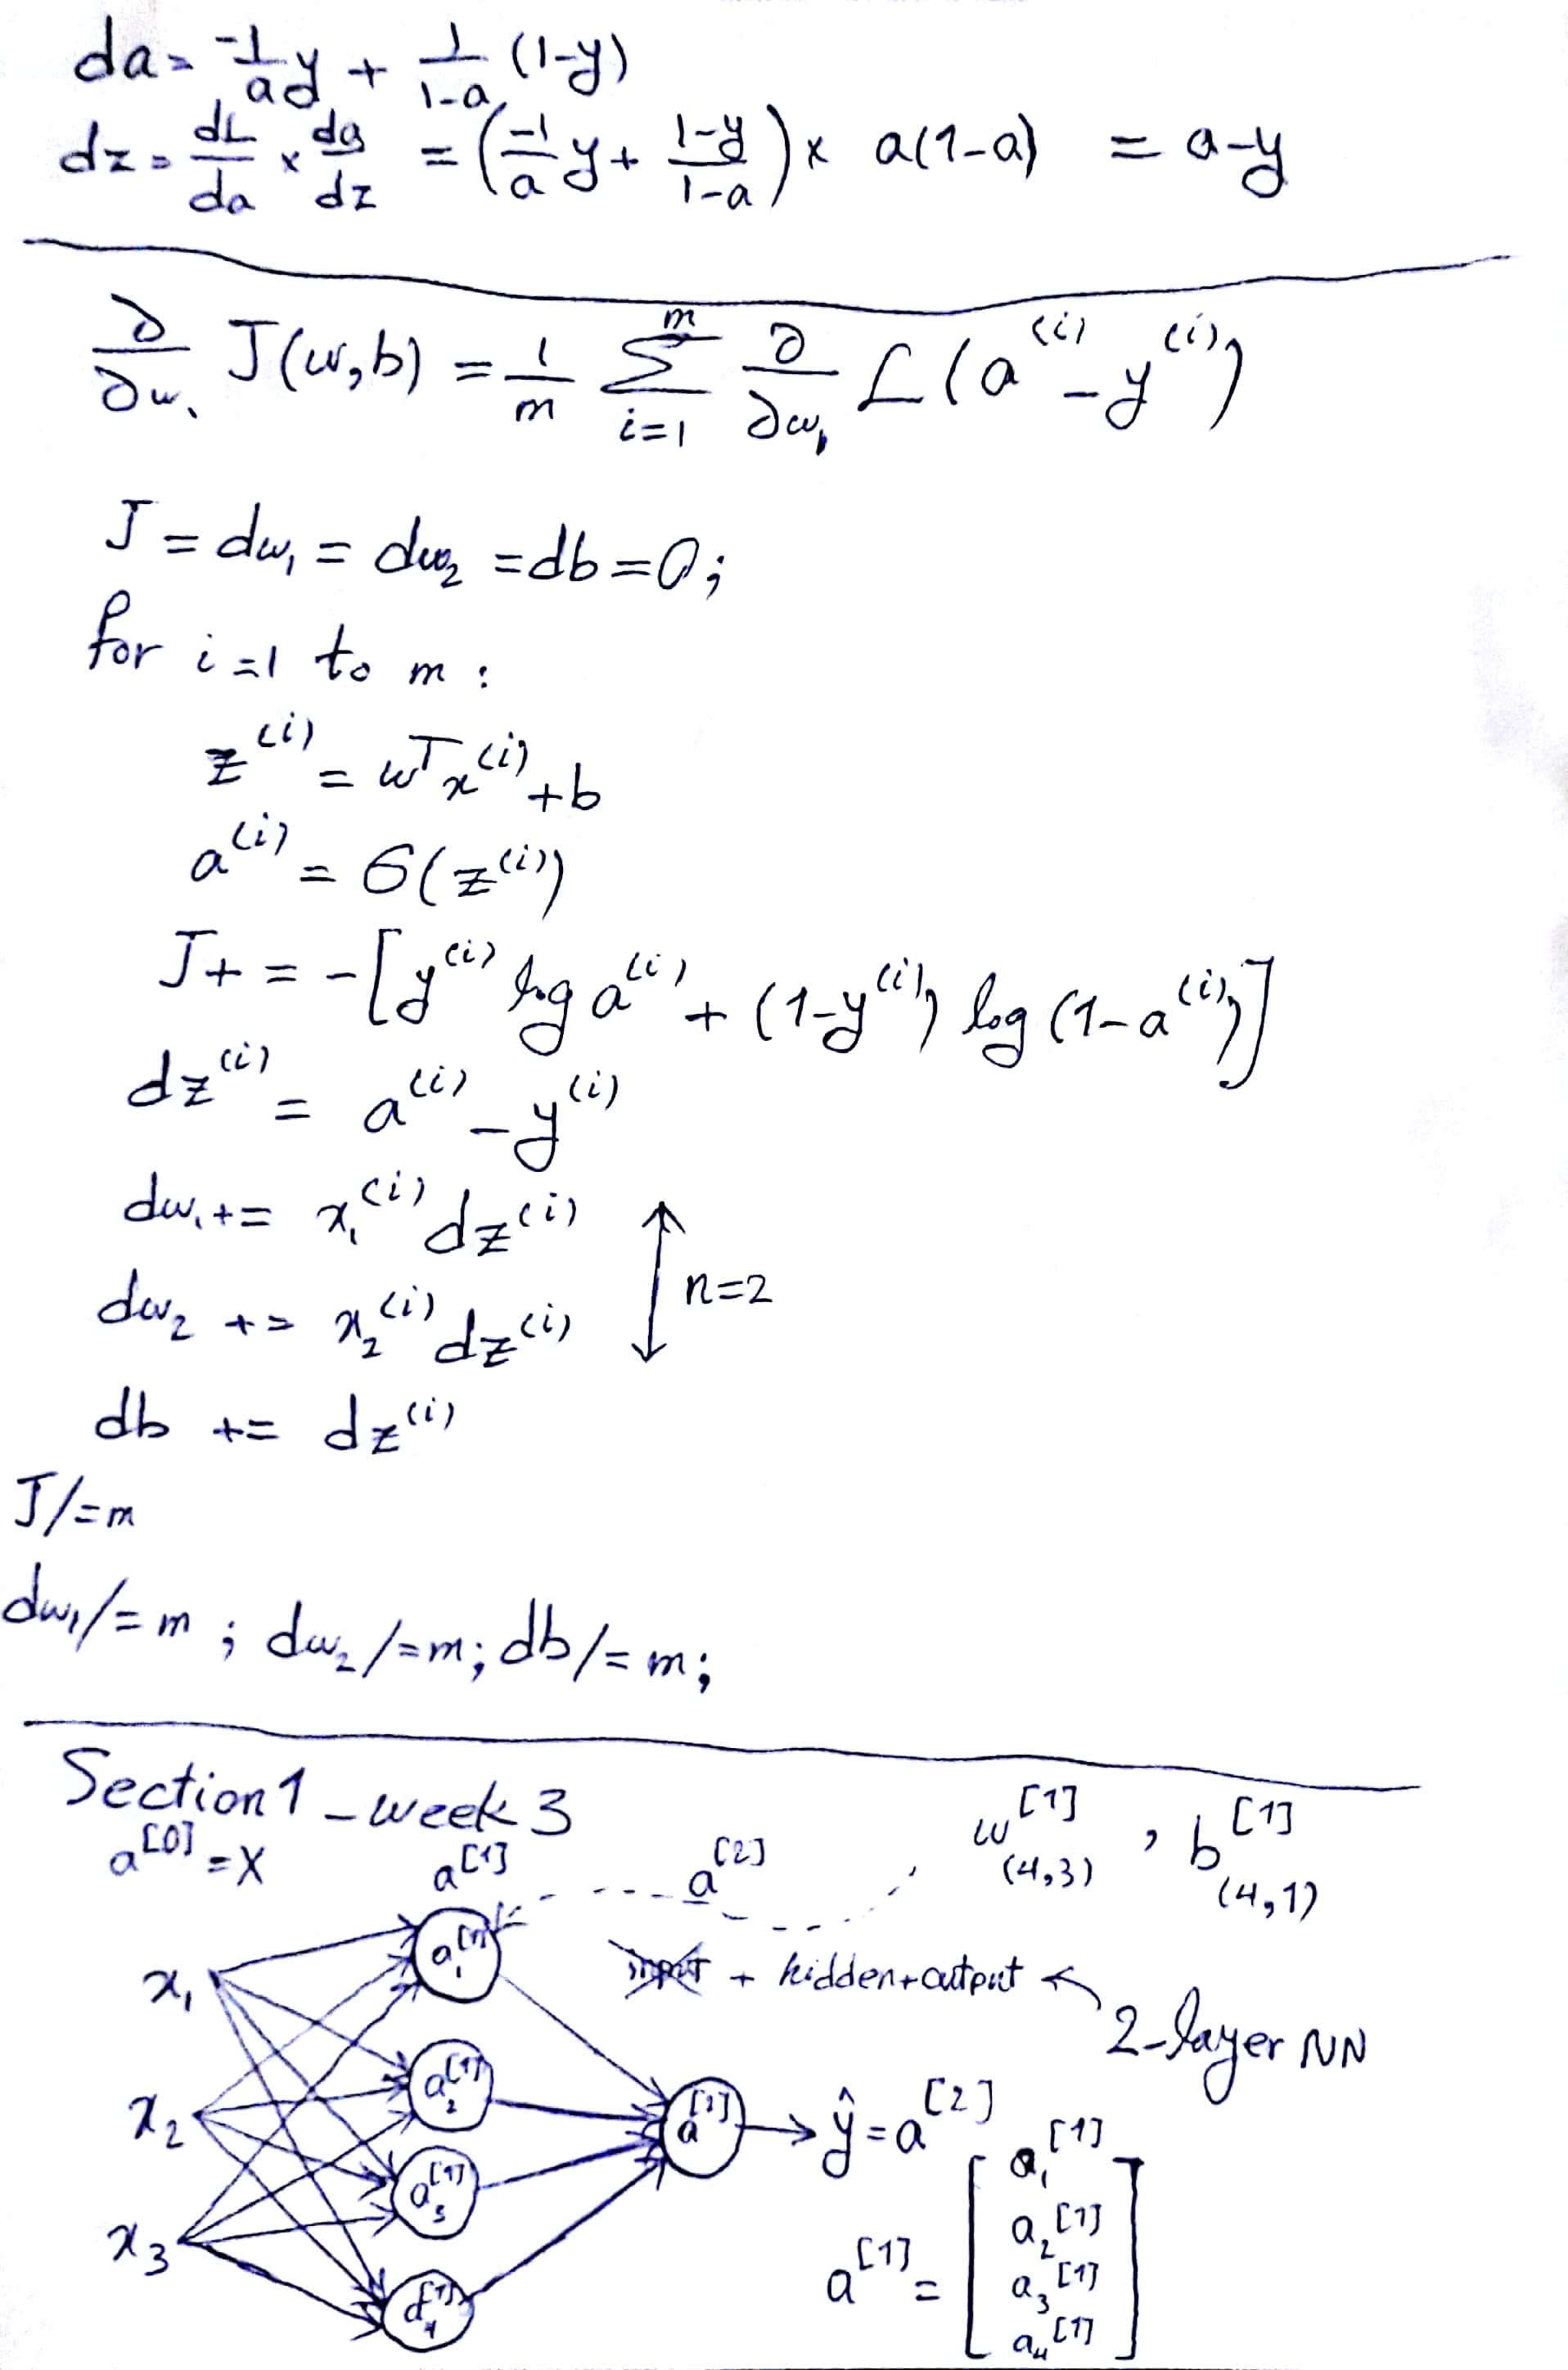 da = -1/a y + 1/1-a (1-y)
dz = dL/da × da/dz = (-1/a y + 1-y/1-a) × a(1-a) = a-y
∂/∂w₁ J(w,b) = 1/m Σ_{i=1}^{m} ∂/∂w₁ L(a^(i) - y^(i))
J = dw₁ = dw₂ = db = 0;
for i=1 to m:
z^(i) = w^T x^(i) + b
a^(i) = σ(z^(i))
J += -[y^(i) log a^(i) + (1-y^(i)) log (1-a^(i))]
dz^(i) = a^(i) - y^(i)
dw₁ += x₁^(i) dz^(i)
n=2
dw₂ += x₂^(i) dz^(i)
db += dz^(i)
J/=m
dw₁/=m ; dw₂/=m; db/=m;
Section 1 - week 3
a^[0] = X
a^[1]
a^[2]
w^[1] (4,3) , b^[1] (4,1)
input + hidden + output
2-layer NN
x₁
x₂
x₃
a₁^[1]
a₂^[1]
a₃^[1]
a₄^[1]
a^[2]
ŷ = a^[2]
a^[1] = [a₁^[1]
a₂^[1]
a₃^[1]
a₄^[1]]